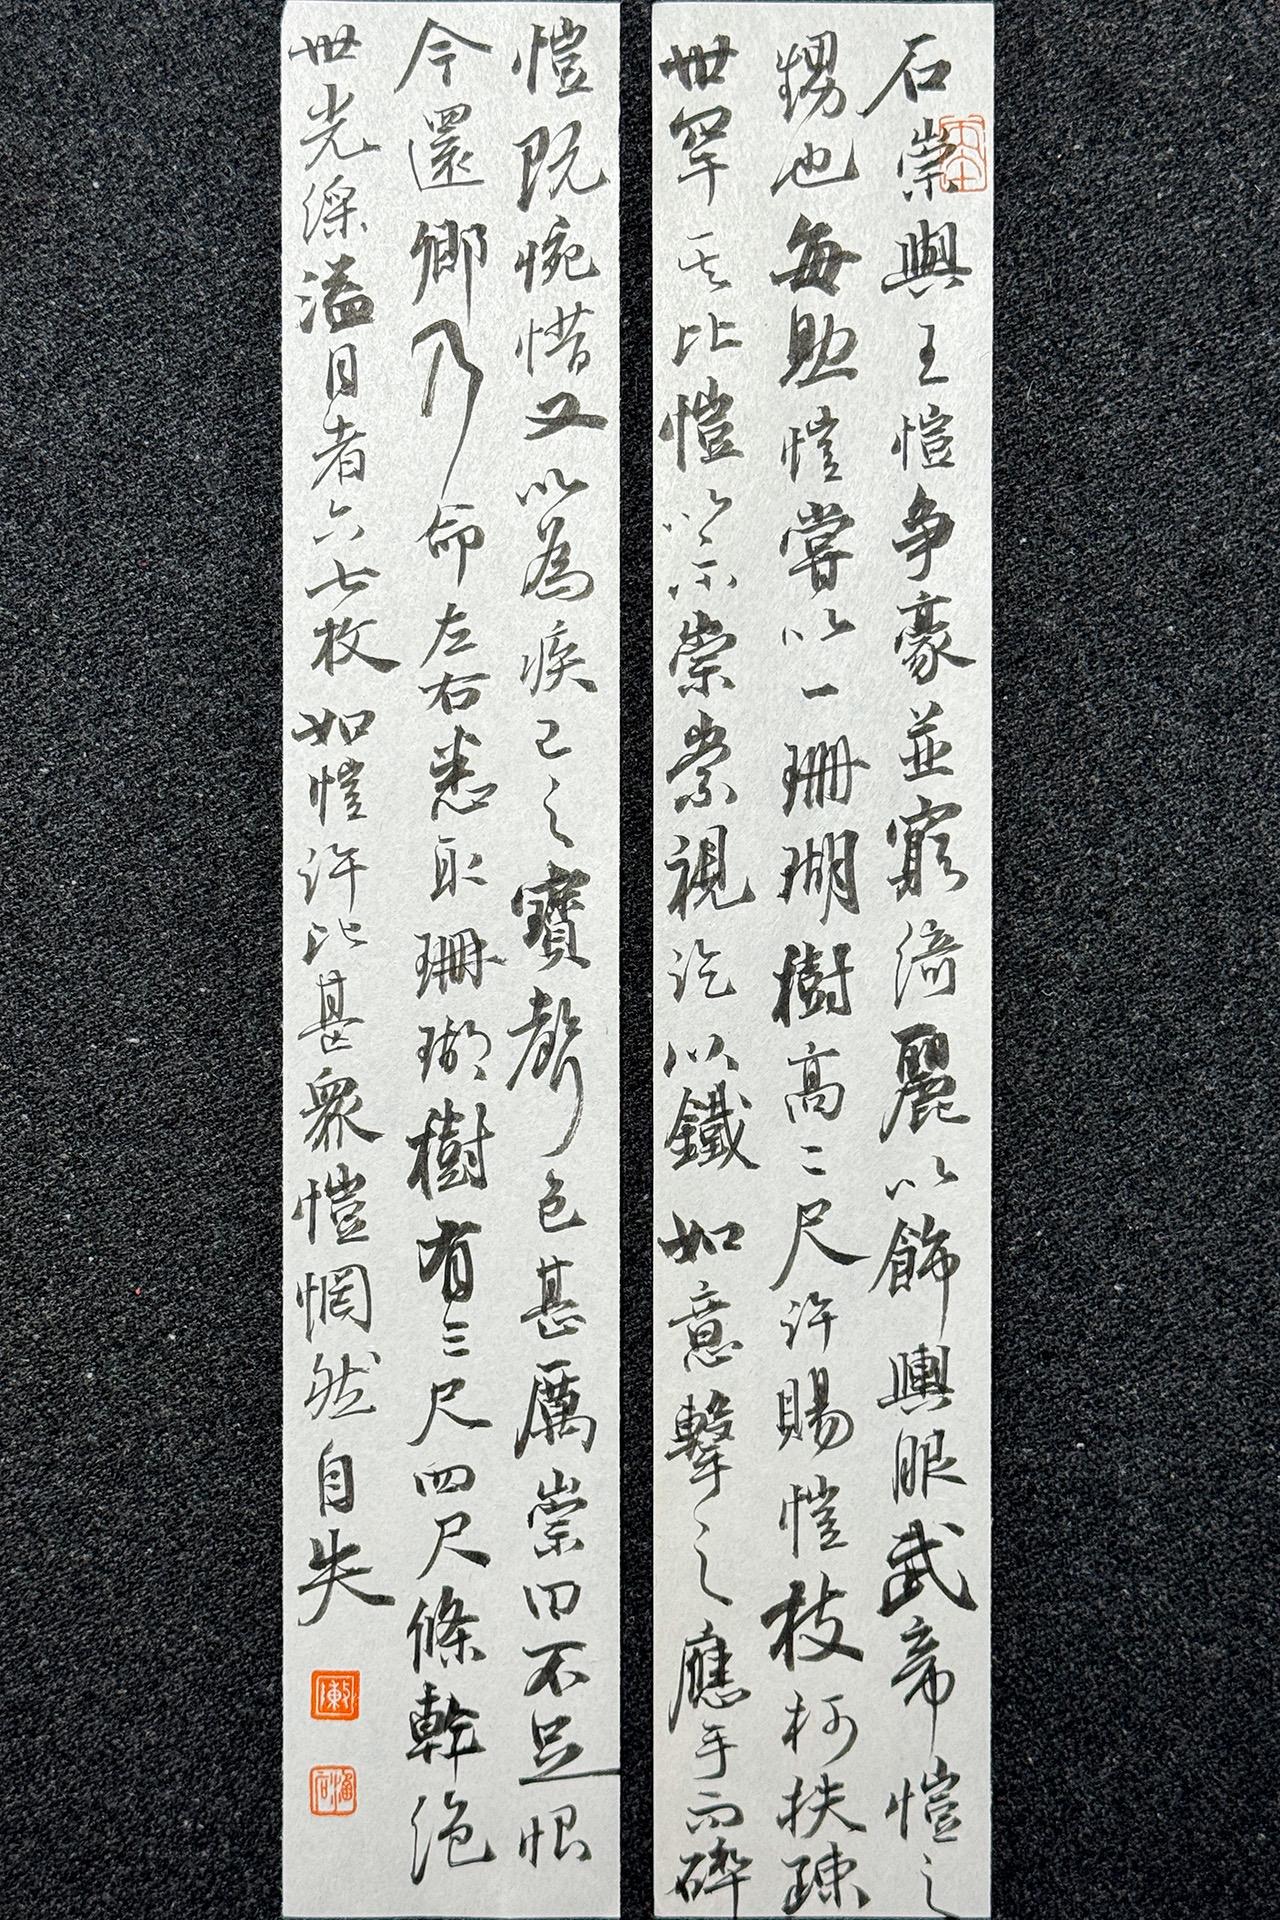 石崇與王愷争豪並窮綺麗以飾輿服武帝愷之
甥也每助愷嘗以一珊瑚樹高二尺許賜愷枝柯扶疎
世罕其比愷以示崇崇視訖以鐵如意擊之應手而碎
愷既惋惜又以為疾己之寶聲色甚厲崇曰不足恨
今還卿乃命左右悉取珊瑚樹有三尺四尺條幹絶
世光綵溢目者六七枚如愷許比甚衆愷惘然自失